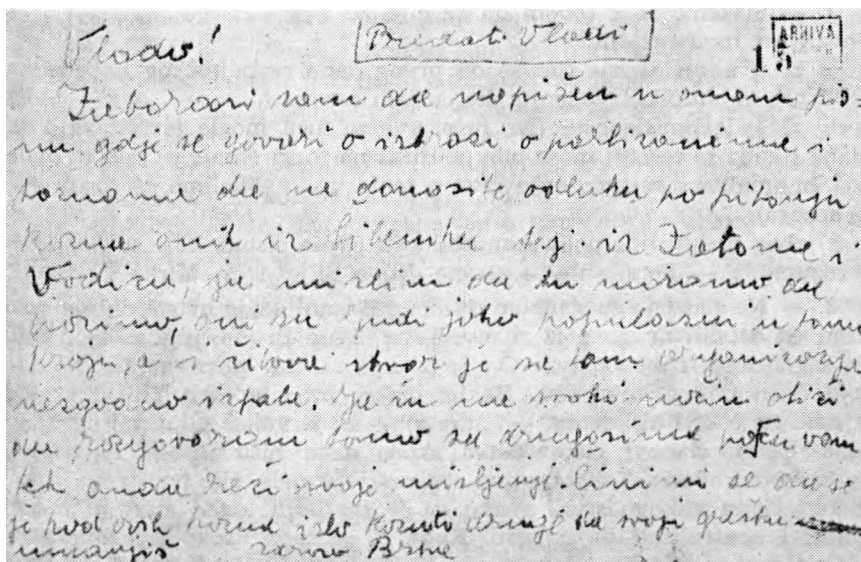 Vlado!
Predati Vladi
ARHIVA
15
Zaboravi sam da napišen u onom pis-
mu gdje se govori o istrazi o partizanima i
tomama da ne donosite odluku po pitanju
kazna onih iz Šibenika tj. iz Zatona i
Vodica, ja mislim da tu moramo da
pazimo, oni su ljudi jako popularni u tome
kraju, a i čitava stvar je se tam organizacije
nezgodno ispala. Ja ću na svaki način otići
da razgovaram tamo sa drugovima pa ću vam
tek onda reći svoje mišljenje. Čini mi se da se
je kod ovih kazna išlo kazniti druge da svoju grešku
umanjiš zdravo Brko